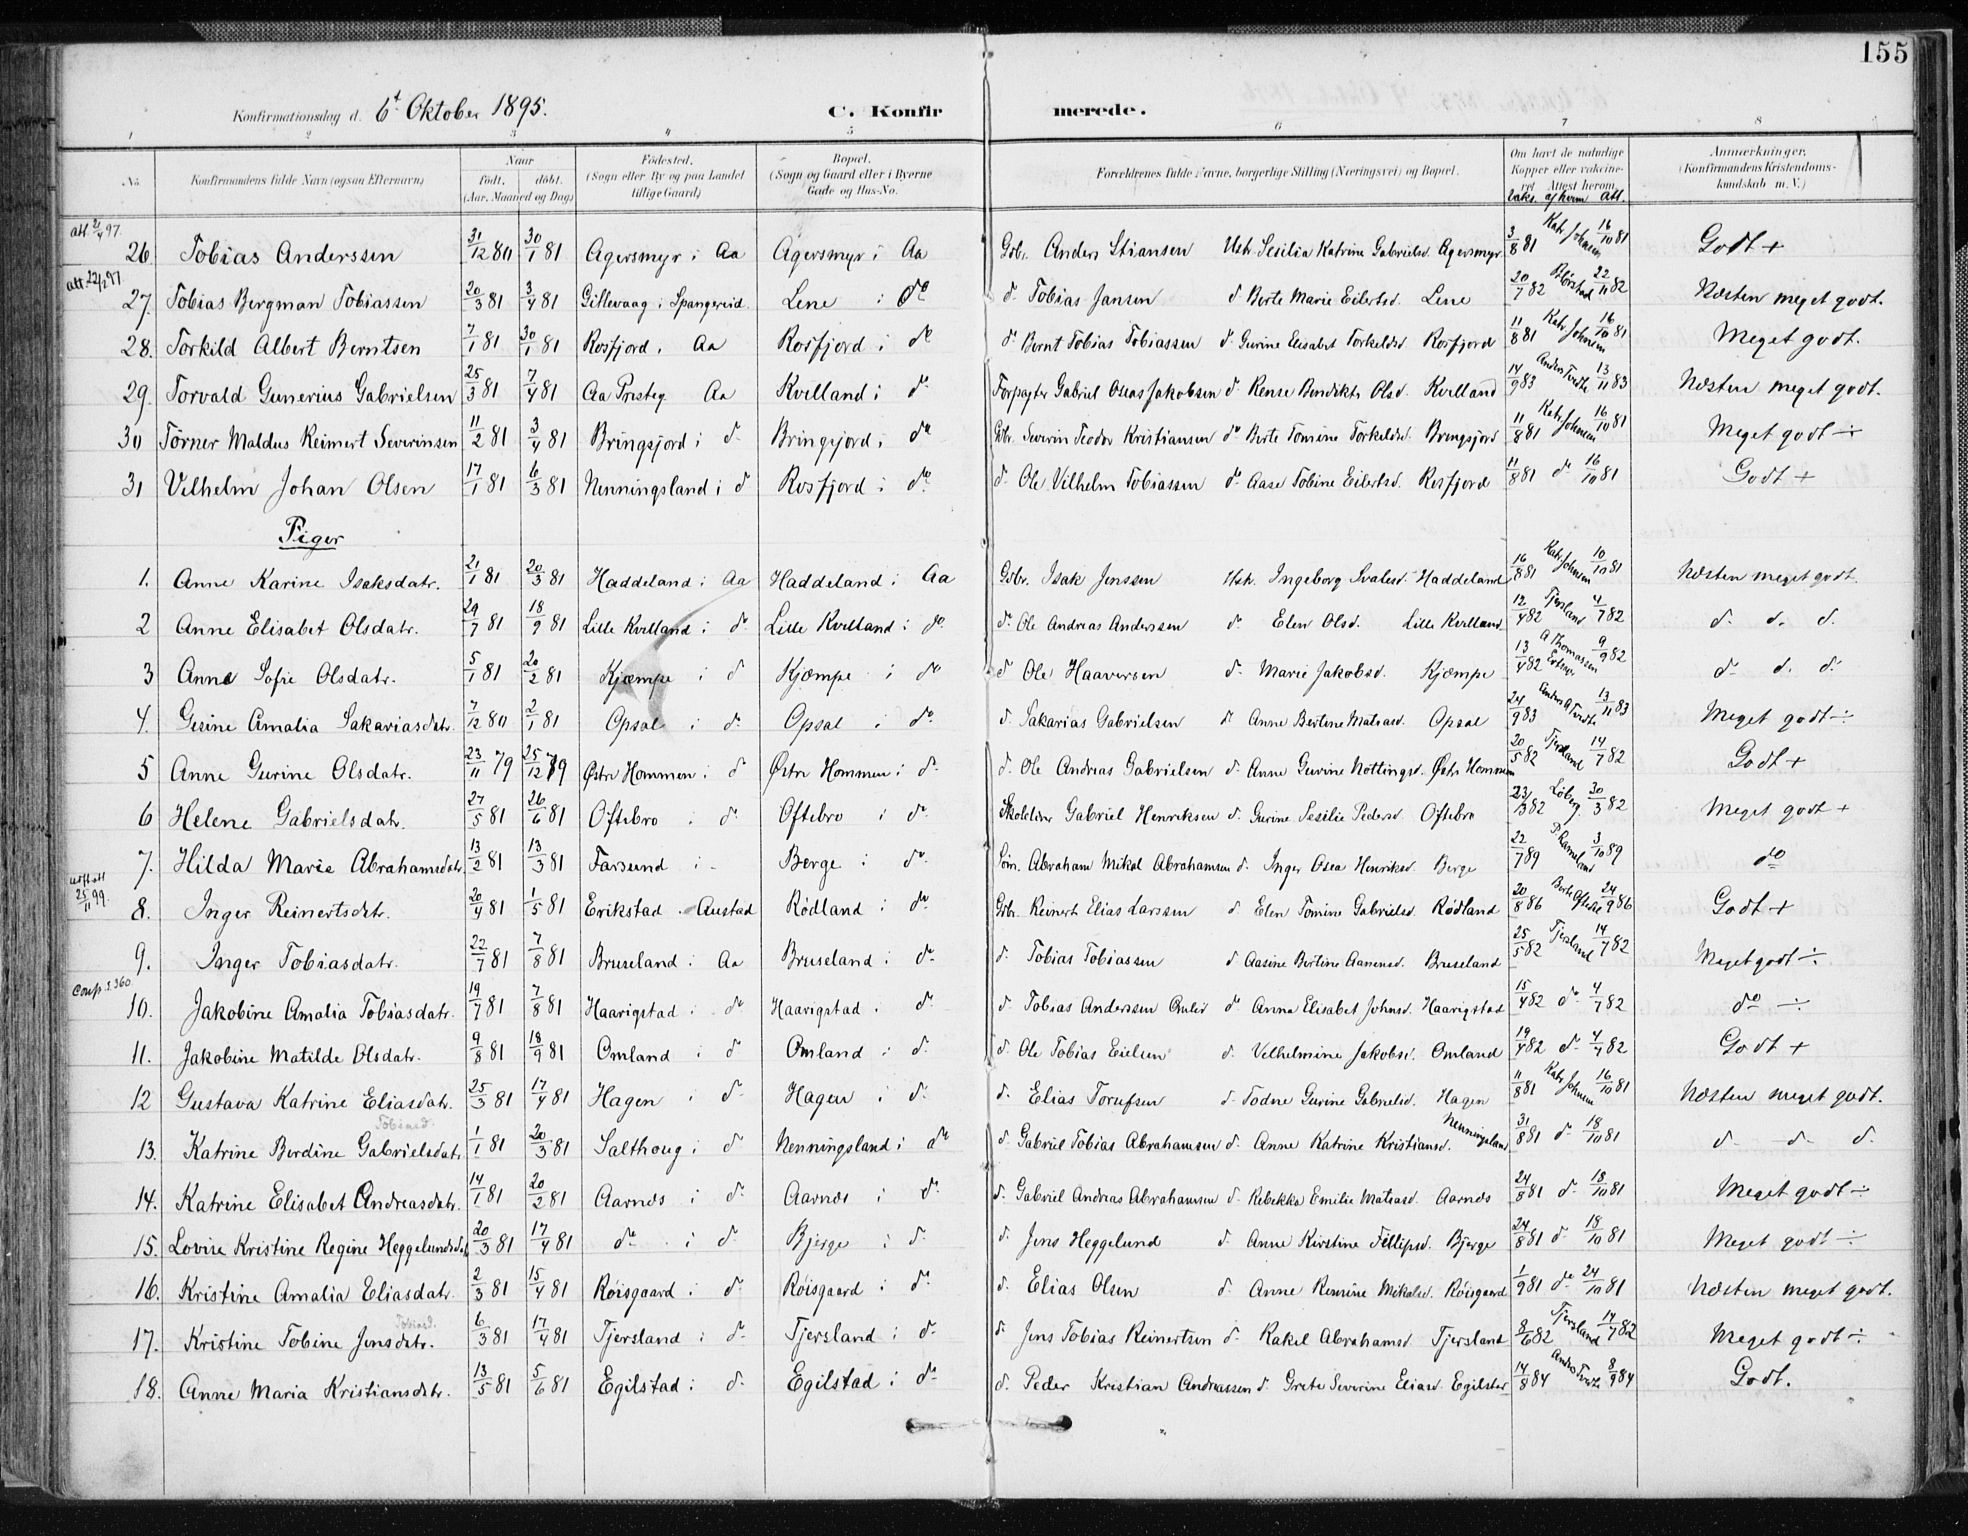 155
Konfirmationsdag d. 6t Oktober 1895. C. Konfirmerede.
1 2 3 4 5 6 7 8
No. Konfirmandens fulde Navn (ogsaa Efternavn) Naar født, døbt. (Aar, Maaned og Dag) Fødested. (Sogn eller By og paa Landet tillige Gaard) Bopæl. (Sogn og Gaard eller i Byerne Gade og Hus-No. Forældrenes fulde Navne, borgerlige Stilling (Næringsvei) og Bopæl. Om havt de naturlige Kopper eller vaccineret. Attest herom. Anmærkninger. (Konfirmandens Kristendomskundskab m. V.)
vaks. af hvem att.
att. 2/4 97.
26. Tobias Anderssen 31/12 80 30/1 81 Agersmyr i Aa Agersmyr i Aa Gbr. Anders Stiansen Hstr. Sesilia Katrine Gabrielsd. Agersmyr 3/8 81 Katr Johnsen 16/10 81 Godt +
att. 22/2 97
27. Tobias Bergman Tobiassen 20/3 81 3/4 81 Gitlevaag i Spangereid Lene i do d. Tobias Jansen d Berte Marie Eilertsd. Lene 20/7 82 22/11 82 Næsten meget godt.
28. Torkild Albert Berntsen 7/1 81 30/1 81 Rosfjord i Aa Rosfjord i do do Bernt Tobias Tobiassen do Gurine Elisabet Torkildsd Rosfjord 11/8 81 Katr Johnsen 16/10 81 Meget godt.
29. Torvald Gunerius Gabrielsen 25/3 81 7/4 81 Aa Prsteg Aa Kvilland i do Forpagter Gabriel Oseas Jakobsen d Rense Bendikte Olsd. Kvilland 14/9 83 13/11 83 Næsten meget godt.
30 Törner Maldus Reimert Severinsen 11/2 81 3/4 81 Bringsjord i d. Bringsjord i do Gbr. Severin Teodor Kristiansen do Berte Tomine Torkildsd. Bringsjord 11/8 81 Katr Johnsen 16/10 81 Meget godt ÷
31 Vilhelm Johan Olsen 17/1 81 6/3 81 Nenningsland i d Rosfjord i do d. Ole Vilhelm Tobiassen do Aase Tobine Eilertsd. Rosfjord 11/8 81 do 16/10 81 Godt +
Piger
1. Anne Karine Isaksdatr. 21/1 81 20/3 81 Haddeland i Aa Haddeland i Aa Gbr. Isak Jenssen Hstr. Ingeborg Svalesd. Haddeland 16/8 81 Katr Johnsen 10/10 81 Næsten meget godt.
2 Anne Elisabet Olsdatr. 29/7 81 18/9 81 Lille Kvilland i do Lille Kvilland i do d. Ole Andreas Anderssen d. Elen Olsd. Lille Kvilland 12/4 82 Tjersland 4/7 82 d. d. d.
3 Anne Sofie Olsdatr. 5/1 81 20/2 81 Kjæmpe i d Kjæmpe i do d Ole Haaversen d. Marie Jakobsd. Kjæmpe 13/4 82 A Thomassen 9/9 82 d. d. d.
4. Gesine Amalia Sakariasdatr. 7/12 80 2/1 81 Opsal i do Opsal i do d. Sakarias Gabrielsen d. Anne Bertine Matiasd. Opsal 24/9 83 13/11 83 Meget godt ÷
5 Anne Gurine Olsdatr. 23/11 79 25/12 79 Østre Hommen i d Østre Hommen i d. d. Ole Andreas Gabrielsen d. Anne Gurine Nottingsd. Østr Hommen 20/5 82 Tjersland 14/7 82 Godt +
6 Helene Gabrielsdatr. 27/5 81 26/6 81 Oftebro i d. Oftebro i do Skolelærer Gabriel Henriksen d. Gurine Sesilie Pedersd. Oftebro 23/3 82 Löberg 30/3 82 Meget godt +
7. Hilda Marie Abrahamsdatr. 13/2 81 13/3 81 Farsund i - Berge i do Søm. Abraham Mikal Abrahamsen d. Inger Osea Henriksd. Berge 22/7 89 3/10 89 do
utfl att 25/11 99.
8. Inger Reinertsdatr. 20/4 81 1/5 81 Erikstad . Austad Rödland i do Gbr. Reinert Elias Larssen d Elen Tomine Gabrielsd. Rødland 20/8 86 24/9 86 Godt +
9. Inger Tobiasdatr. 22/7 81 7/8 81 Bruseland i Aa Bruseland i do d. Tobias Tobiassen d Aasine Bertine Aanensd. Bruseland 25/5 82 Tjersland 14/7 82 Meget godt ÷
Conf. s. 360
10. Jakobine Amalia Tobiasdatr. 19/7 81 7/8 81 Haarigstad i do Haarigstad i d. d. Tobias Anderssen do Anna Elisabet Johnsd. Haarigstad 15/4 82 do 4/7 82 do ÷
11. Jakobine Matilde Olsdatr. 9/8 81 18/9 81 Omland i d Omland i d. d. Ole Tobias Eielsen d. Velhelmine Jakobsd. Omland 19/4 82 do 4/7 82 Godt +
12 Gustava Katrine Eliasdatr. 25/3 81 17/4 81 Hagen i do Hagen i do d. Elias Torufsen d. Todne Gurine Gabrielsd. Hagen 11/8 81 Katr Johnsen 16/10 81 Næsten meget godt.
Tobiasd.
13. Katrine Berdine Gabrielsdatr 1/1 81 20/3 81 Salthoug i d Nenningsland i do d. Gabriel Tobias Abrahamsen d. Anne Katrine Kristiansd. Nenningsland 31/8 81 do 18/10 81 d. d. d.
14. Katrine Elisabet Andreasdatr. 14/1 81 20/2 81 Aarnes i d. Aarnes i do d. Gabriel Andreas Abrahamsen d. Rebekka Emilie Matiasd. Aarnes 24/8 81 do 18/10 81 Meget godt ÷
15. Lovise Kristine Regine Heggelundsdatr 20/3 81 17/4 81 do i d Bjerge i d. d. Jens Heggelund d. Anne Kirstine Fillipsd. Bjerge 24/8 81 do 18/10 81 Meget godt ÷
16. Kristine Amalia Eliasdatr. 2/3 81 15/4 81 Røisgaard i d. Røisgaard i do d. Elias Olsen d. Anne Romine Mikalsd. Røisgaard 1/9 81 do 24/10 81 Næsten meget godt.
Tobiasd.
17. Kristine Tobine Jensdatr. 6/3 81 17/4 81 Tjersland i do Tjersland i d. d. Jens Tobias Reinertsen d. Rakel Abrahamsd. Tjersland 8/6 82 Tjersland 14/7 82 Meget godt ÷
18. Anne Maria Kristiansdatr. 13/5 81 5/6 81 Egilstad i d. Egilstad i do d. Peder Kristian Andreassen d. Grete Severine Eliasd. Egilstad 14/8 84 8/9 84 Godt.